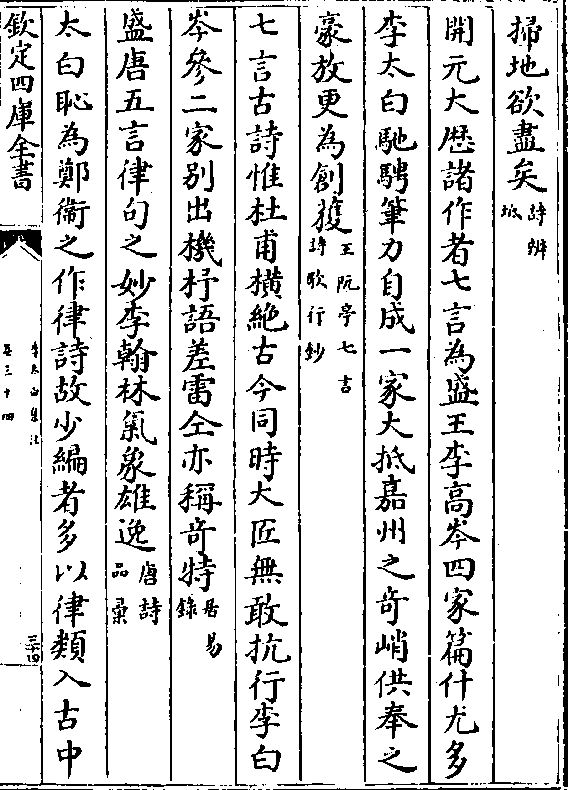 掃地欲盡矣詩辨坻
開元大歷諸作者七言為盛王李高岑四家篇什尤多
李太白馳騁筆力自成一家大抵嘉州之奇峭供奉之
豪放更為創獲王阮亭七言詩歌行鈔
七言古詩惟杜甫橫絶古今同時大匠無敢抗行李白
岑參二家别出機杼語差雷仝亦稱竒特居易錄
盛唐五言律句之妙李翰林氣象雄逸唐詩品彚
太白恥為鄭衞之作律詩故少編者多以律類入古中
欽定四庫全書
李太白集注
卷三十四
三十四